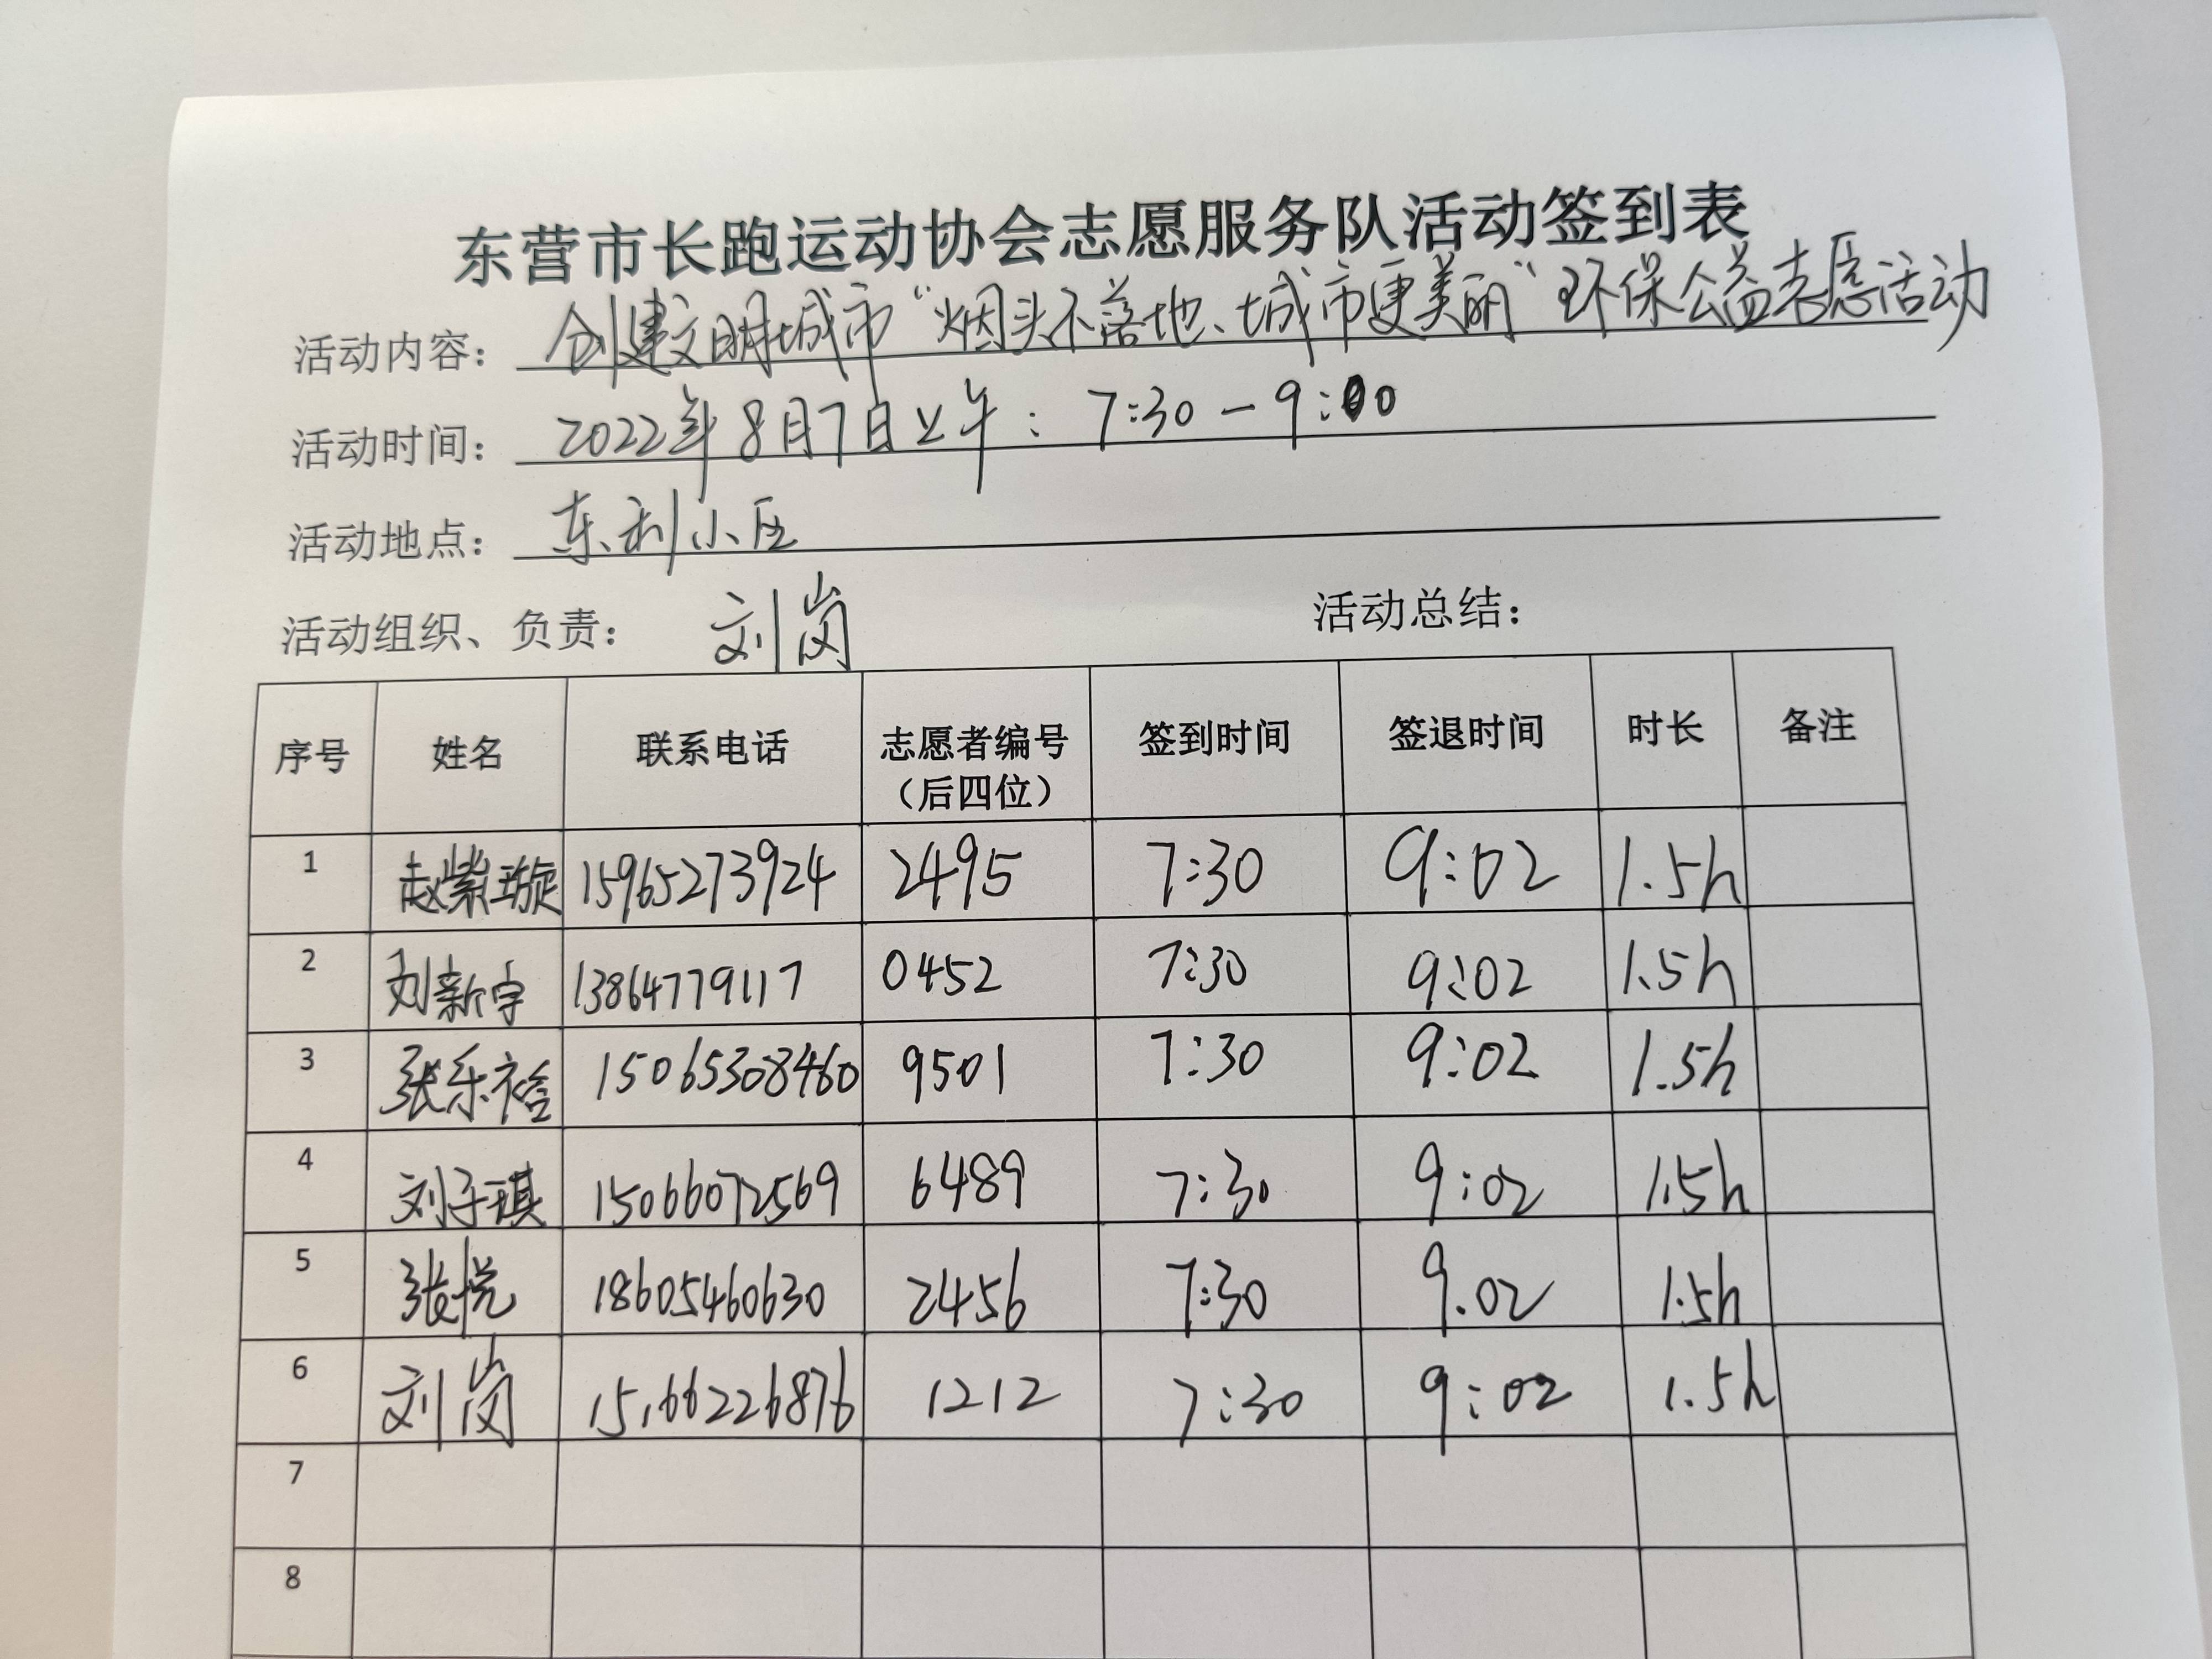 东营市长跑运动协会志愿服务队活动签到表
活动内容：创建文明城市“烟头不落地、城市更美丽”环保公益志愿活动
活动时间：2022年8月7日上午：7:30-9:00
活动地点：东利小区
活动组织、负责：刘岗 活动总结：
序号 姓名 联系电话 志愿者编号（后四位） 签到时间 签退时间 时长 备注
1 赵紫璇 15965273924 2495 7:30 9:02 1.5h
2 刘新宇 13864779117 0452 7:30 9:02 1.5h
3 张乐 15065308460 9501 7:30 9:02 1.5h
4 刘子琪 15066072569 6489 7:30 9:02 1.5h
5 张悦 18605460630 2456 7:30 9.02 1.5h
6 刘岗 15166226876 1212 7:30 9:02 1.5h
7
8